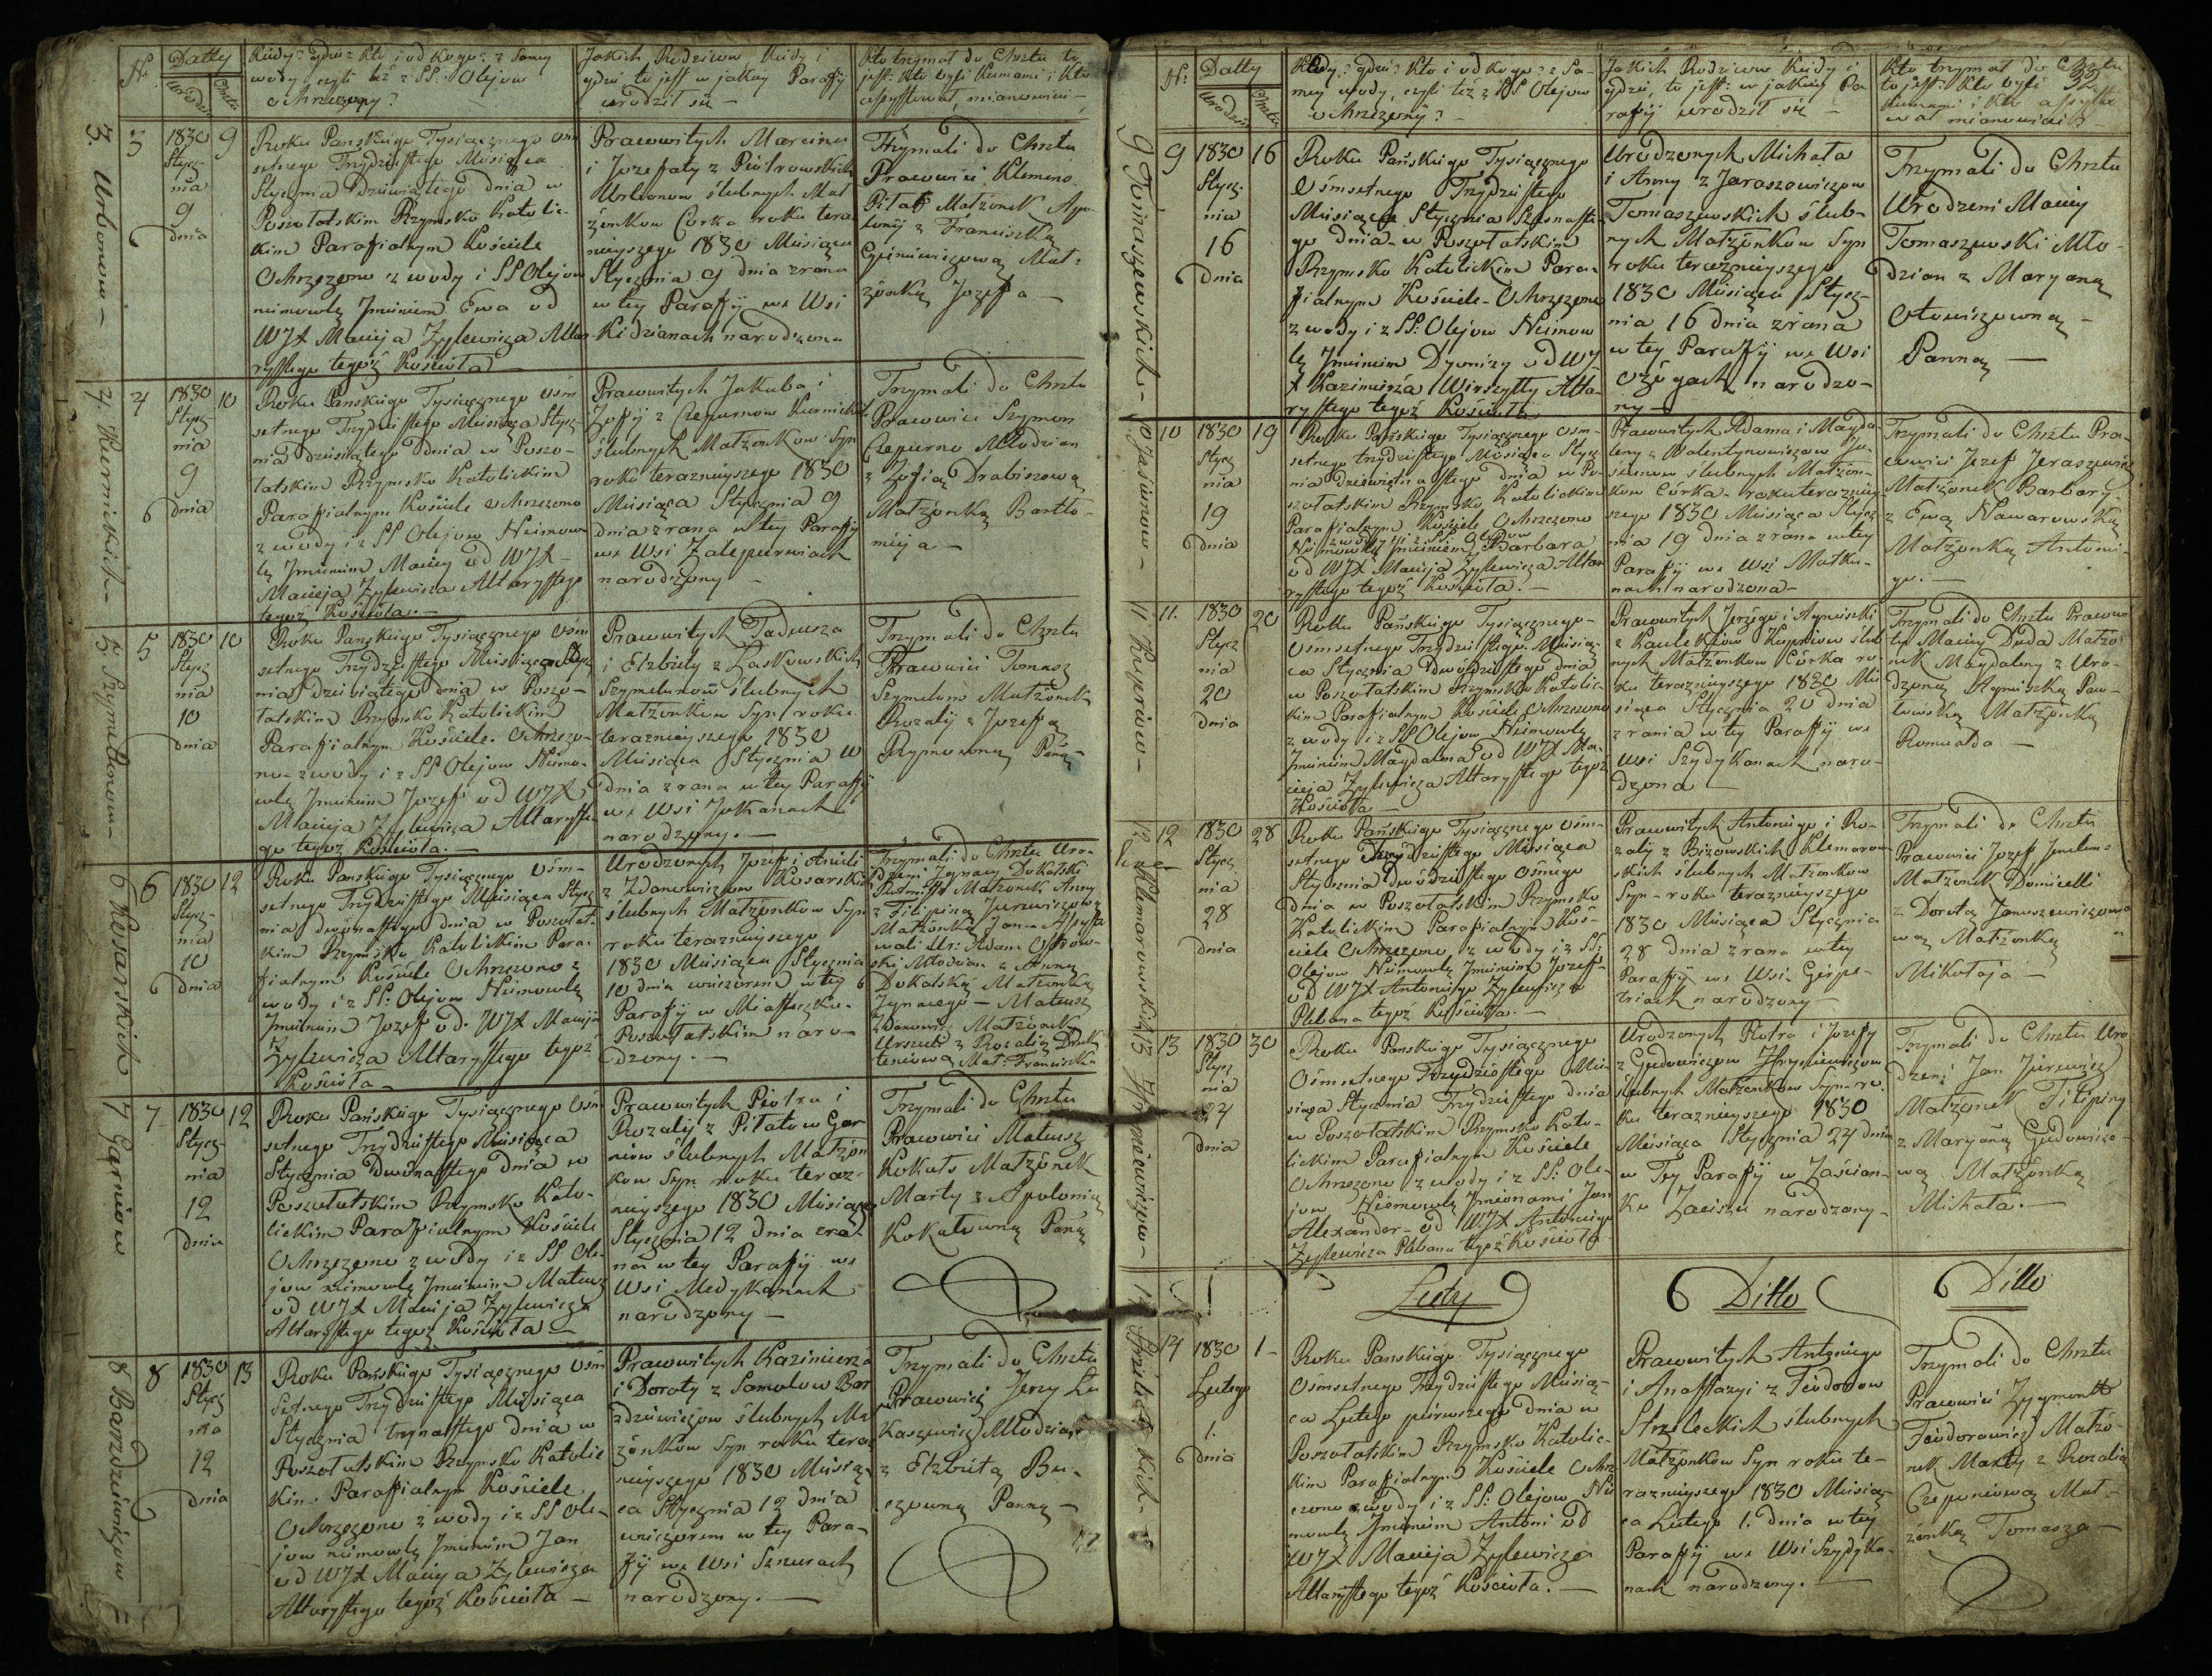 Nr.
Datty
Urodzin
Chrztu
Kiedy? gdzie? Kto i od kogo? z samey
wody czyli też z SS: Olejow
ochrzczony?
Jakich Rodzicow, Kiedy i
gdzie to jest w jakiey Parafij
urodził się —
Kto trzymał do Chrztu to
jest: Kto byli Kumami i Kto
assystował, mianowicie —
3. Urbonow —
3
1830
Stycz-
nia
9
dnia
9
Roku Panskiego Tysiącznego Ośm
setnego Trzydziestego Miesiąca
Stycznia dziewiątego dnia w
Poszołatskim Rzymsko Katolic-
kim Parafialnym Kościele
Ochrzczono z wody i SS Olejow
niemowlę Jmieniem Ewa od
WJX Macieja Zylewicza Altar-
rystego tegoż Kościoła —
Prawowitych Marcina
i Jozefaty z Piotrowskich
Urbonow ślubnych Mał
żonkow Corka roku tera
znieyszego 1830 Miesiąca
Stycznia 9 dnia zrana
w tey Parafij we Wsi
Kidzianach narodzona
Trzymali do Chrztu
Prawowici Klemens
Piłat Małżonek Apo-
lonij z Franciszką
Mał-
żonką Jozefa —
4. Kurnickich —
4
1830
Stycz
nia
9
dnia
10
Roku Pańskiego Tysiącznego Ośm
setnego Trzydziestego Miesiąca Stycz-
nia dziesiątego dnia w Poszo-
łatskim Rzymsko Katolickim
Parafialnym Kościele ochrzczono
z wody i z SS Olejow Niemow
lę Jmieniem Maciey od WJX
Macieja Zylewicza Altarystego
tegoż Kościoła. —
Prawowitych Jakuba i
Zofij z Czepurnow Kurnickich
ślubnych Małżonkow Syn
roku teraznieyszego 1830
Miesiąca Stycznia 9
dnia zrana w tey Parafij
we Wsi Zalepurwiach
narodzony —
Trzymali do Chrztu
Prawowici Szymon
Czepurno Młodzian
z Zofią Drabiszową
Małżonką Bartło-
mieja —
5. Szymelunow —
5
1830
Stycz
nia
10
dnia
10
Roku Panskiego Tysiącznego Ośm
setnego Trzydziestego Miesiąca Stycz
nia dziesiątego dnia w Poszo-
łatskim Rzymsko Katolickim
Parafialnym Kościele. Ochrzczo-
no z wody i z SS Olejow Niemo-
wlę Jmieniem Jozef od WJX
Macieja Zylewicza Altaryste-
go tegoż Kościoła. —
Prawowitych Tadeusza
i Elzbiety z Laskowskich
Szymelunow ślubnych
Małżonkow Syn roku
teraznieyszego 1830
Miesiąca Stycznia 10
dnia zrana w tey Parafij
we Wsi Jotkanach
narodzony. —
Trzymali do Chrztu
Prawowici Tomasz
Szymelun Małżonek
Rozalij z Jozefą
Rymowną Panną
6 Kosarskich
6
1830
Stycz-
nia
10
dnia
12
Roku Panskiego Tysiącznego Ośm-
setnego Trzydziestego Miesiąca Stycz
nia dwonastego dnia w Poszołat-
kim Rzymsko Katolickim Para-
fialnym Kościele Ochrzczono z
wody i z SS: Olejow Niemowlę
Jmieniem Jozef od WJX Macieja
Zylewicza Altarystego tegoż
Kościoła —
Urodzonych Jozefa i Anieli
z Zdanowiczow Kosarskich
ślubnych Małżonkow Syn
roku teraznieyszego
1830 Miesiąca Stycznia
10 dnia wieczorem w tey
Parafij w Miasteczku
Poszołatskim naro-
dzony. —
Trzymali do Chrztu Uro-
dzeni Jgnacy Dokalski
Małżonek Anny
z Filipiną Jurewiczową
Małżonką Jana — Assysto
wali Ur: Adam Ostrow-
ski Młodzian z Anną
Dokalską Małżonką
Jgnacego — Mateusz
Zdanowicz Małżonek
Urszuli z Rozalią
Mał: Franciszka
7 Garniow
7
1830
Stycz-
nia
12
dnia
12
Roku Pańskiego Tysiącznego Ośm
setnego Trzydziestego Miesiąca
Stycznia dwonastego dnia w
Poszołatskim Rzymsko Kato-
lickim Parafialnym Kościele
Ochrzczono z wody i z SS Ole-
jow niemowlę Jmieniem Mateusz
od WJX Macieja Zylewicza
Altarystego tegoż Kościoła —
Prawowitych Piotra i
Rozalij z Piłatow Gar
niow ślubnych Małżon
kow Syn roku teraz-
nieyszego 1830 Miesiąca
Stycznia 12 dnia zra-
na w tey Parafij we
Wsi Medykanach
narodzony —
Trzymali do Chrztu
Prawowici Mateusz
Kokats Małżonek
Marty z Apolonią
Kokatowną Panną
8 Barzdziewiczow
8
1830
Stycz
nia
12
dnia
13
Roku Pańskiego Tysiącznego Ośm
setnego Trzydziestego Miesiąca
Stycznia trzynastego dnia w
Poszołatskim Rzymsko Katolic
kim Parafialnym Kościele
Ochrzczono z wody i z SS Ole-
jow niemowlę Jmieniem Jan
od WJX Macieja Zylewicza
Altarystego tegoż Kościoła —
Prawowitych Kazimierza
i Doroty z Samolow Bar
zdziewiczow ślubnych Ma
żonkow Syn roku teraz
nieyszego 1830 Miesią-
ca Stycznia 12 dnia
wieczorem w tey Para-
fij we Wsi Sznurach
narodzony. —
Trzymali do Chrztu
Prawowici Jerzy Łu
kaszewicz Młodzian
z Elzbietą Bu-
czowną Panną —
Nr:
Datty
Urodzin
Chrztu
Kiedy? gdzie? Kto i od kogo? z Sa-
mey wody, czyli też z SS Olejow
ochrzczony? —
Jakich Rodzicow Kiedy i
gdzie, to jest: w jakiey Pa
rafij urodził się —
Kto trzymał do Chrztu
to jest: Kto byli
Kumami i Kto assysto
wał mianowicie
32.
9 Tomaszewskich —
9
1830
Stycz-
nia
16
dnia
16
Roku Pańskiego Tysiącznego
Ośmsetnego Trzydziestego
Miesiąca Stycznia Szesnaste
go dnia w Poszołatskim
Rzymsko Katolickim Para-
fialnym Kościele — Ochrzczono
z wody i z SS: Olejow Niemow
lę Jmieniem Dyonizy od WJ
X Kazimierza Wirszyłły Alta-
rystego tegoż Kościoła
Urodzonych Michała
i Anny z Jaraszewiczow
Tomaszewskich ślub-
nych Małżonkow Syn
roku teraznieyszego
1830 Miesiąca Stycz-
nia 16 dnia zrana
w tey Parafij we Wsi
Ożogach narodzo-
ny —
Trzymali do Chrztu
Urodzeni Maciey
Tomaszewski Mło-
dzian z Maryaną
Otowiczowną —
Panną —
10 Jasiunow —
10
1830
Stycz
nia
19
dnia
19
Roku Pańskiego Tysiącznego Ośm-
setnego trzydziestego Miesiąca Stycz
nia dziewiętnastego dnia w Po-
szołatskim Rzymsko Katolickim
Parafialnym Kościele Ochrzczono
z wody i z SS Olejow
Niemowlę Jmieniem Barbara
od WJX Macieja Zylewicza Altar
rystego tegoż Kościoła. —
Prawowitych Adama i Magda-
leny z Walentynowiczow Ja-
siunow ślubnych Małżon-
kow Córka — roku terazniey-
szego 1830 Miesiąca Stycz
nia 19 dnia zrana w tey
Parafij we Wsi Matku-
nach narodzona —
Trzymali do Chrztu Pra-
wowici Jozef Jeraszewicz
Małżonek Barbary
z Ewą Nawarowską
Małżonką Antoni-
go. —
11 Kupriow —
11.
1830
Stycz
nia
20
dnia
20
Roku Pańskiego Tysiącznego —
Ośmsetnego Trzydziestego Miesią-
ca Stycznia Dwódziestego dnia
w Poszołatskim Rzymsko Katolic
kim Parafialnym Kościele Ochrzczono
z wody i z SS Olejow Niemowlę
Jmieniem Magdalena od WJX Ma-
cieja Zylewicza Altarystego tegoż
Kościoła —
Prawowitych Jerzego i Agnieszki
z Kupriow ślub
nych Małżonkow Córka ro-
ku teraznieyszego 1830 Mie
siąca Stycznia 20 dnia
z rania w tey Parafij we
wsi Szydykanach naro-
dzona —
Trzymali do Chrztu Prawow
ty Maciey Duda Małżo
nek Magdaleny z Uro-
dzoną Agnieszką Paw-
łowską Małżonką
Romualda —
12 Klemarowskich
12
1830
Stycz
nia
28
dnia
28
Roku Pańskiego Tysiącznego Ośm-
setnego Trzydziestego Miesiąca
Stycznia dwódziestego Ośmego
dnia w Poszołatskim Rzymsko
Katolickim Parafialnym Koś-
ciele Ochrzczono z wody i z SS:
Olejow Niemowlę Jmieniem Jozef
od WJX Antoniego Zylewicza
Plebana tegoż Kościoła. —
Prawowitych Antoniego i Ro-
zalij z Bizowskich Klemarow
skich ślubnych Małżonkow
Syn — roku teraznieyszego
1830 Miesiąca Stycznia
28 dnia zrana w tey
Parafij we Wsi
narodzony —
Trzymali do Chrztu
Prawowici Jozef
Małżonek Domicelli
z Dorotą Januszewiczo-
wą Małżonką
Mikołaja —
13 Hryniewiczow —
13
1830
Stycz
nia
24
dnia
30
Roku Panskiego Tysiącznego
Ośmsetnego Trzydziestego Mie
siąca Stycznia Trzydziestego dnia
w Poszołatskim Rzymsko Kato-
lickim Parafialnym Kościele
Ochrzczono z wody i z SS: Ole-
jow Niemowlę Jmionami Jan
Alexander — od WJX Antoniego
Zylewicza Plebana tegoż Kościoła
Urodzonych Piotra i Jozefy
z Gudowiczow Hryniewiczow
ślubnych Małżonkow Syn — ro-
ku teraznieyszego 1830
Miesiąca Stycznia 24 dnia
w Tey Parafij w Zaścian-
ku Zaciszu narodzony —
Trzymali do Chrztu Uro
dzeni Jan Jurewicz
Małżonek Filipiny
z Maryaną Gudowiczo-
wą Małżonką
Michała. —
Luty
Ditto
Ditto
14 Strzeleckich —
14
1830
Lutego
1.
dnia
1 —
Roku Panskiego Tysiącznego
Ośmsetnego Trzydziestego Miesią-
ca Lutego pierwszego dnia w
Poszołatskim Rzymsko Katolic-
kim Parafialnym Kościele Ochrz
czono z wody i z SS: Olejow Nie
mowlę Jmieniem Antoni od
WJX Macieja Zylewicza
Altarystego tegoż Kościoła. —
Prawowitych Antoniego
i Anastazyi z Feodorow
Strzeleckich ślubnych
Małżonkow Syn roku te-
raznieyszego 1830 Miesią-
ca Lutego 1. dnia w tey
Parafij we Wsi Szydyka-
nach narodzony. —
Trzymali do Chrztu
Prawowici Zygmontt
Feodorowicz Małżo-
nek Marty z Rozalią
Czeponiową Mał-
żonką Tomasza —